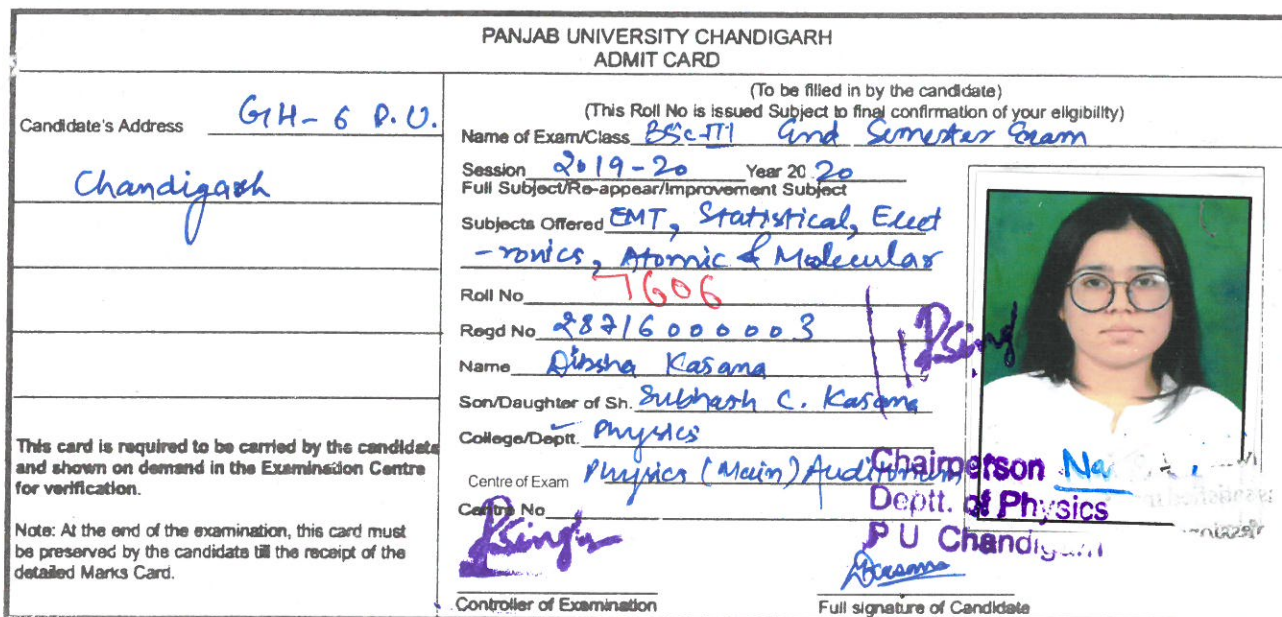 PANJAB UNIVERSITY CHANDIGARH
ADMIT CARD
Candidate's Address GH-6 P.U.
Chandigarh
This card is required to be carried by the candidate
and shown on demand in the Examination Centre
for verification.
Note: At the end of the examination, this card must
be preserved by the candidate till the receipt of the
detailed Marks Card.
(To be filled in by the candidate)
(This Roll No is issued Subject to final confirmation of your eligibility)
Name of Exam/Class BSc-III End Semester Exam
Session 2019-20 Year 20 20
Full Subject/Re-appear/Improvement Subject
Subjects Offered EMT, Statistical, Elect
-ronics, Atomic & Molecular
Roll No 7606
Regd No 28716000003
Name Kasana
Son/Daughter of Sh. Subhash C. Kasana
College/Deptt. Physics
Centre of Exam Physics (Main) Auditorium
Centre No
PSingh
Controller of Examination
PSingh
Chairperson
Deptt. of Physics
P U Chandigarh
Full signature of Candidate